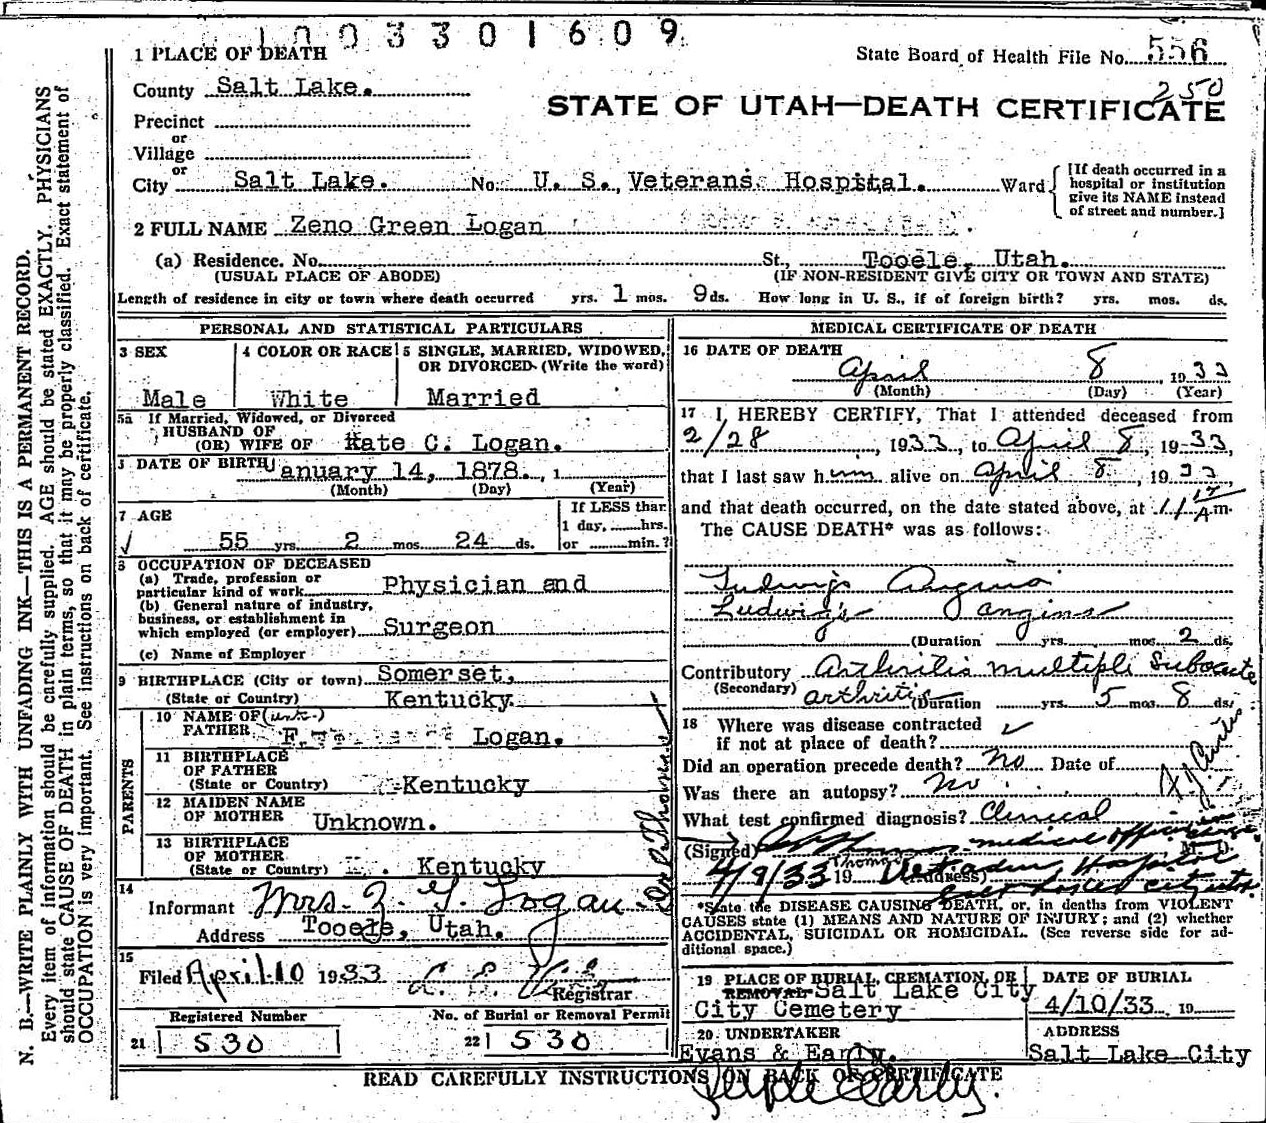 1003301609
1 PLACE OF DEATH
State Board of Health File No. 556
County Salt Lake.
250
STATE OF UTAH—DEATH CERTIFICATE
Precinct
or
Village
or
City Salt Lake. No. U. S. Veterans Hospital. Ward
[If death occurred in a hospital or institution give its NAME instead of street and number.]
2 FULL NAME Zeno Green Logan
(a) Residence. No. St., Tooele, Utah.
(USUAL PLACE OF ABODE) (IF NON-RESIDENT GIVE CITY OR TOWN AND STATE)
Length of residence in city or town where death occurred yrs. 1 mos. 9 ds. How long in U. S., if of foreign birth? yrs. mos. ds.
PERSONAL AND STATISTICAL PARTICULARS
3 SEX 4 COLOR OR RACE 5 SINGLE, MARRIED, WIDOWED,
OR DIVORCED (Write the word)
Male White Married
5a If Married, Widowed, or Divorced
HUSBAND OF
(OR) WIFE OF Kate C. Logan.
DATE OF BIRTH January 14, 1878. 1
(Month) (Day) (Year)
7 AGE
If LESS than
1 day, hrs.
or min.?
55 yrs. 2 mos. 24 ds.
8 OCCUPATION OF DECEASED
(a) Trade, profession or
particular kind of work Physician and
(b) General nature of industry,
business, or establishment in
which employed (or employer) Surgeon
(c) Name of Employer
9 BIRTHPLACE (City or town) Somerset,
(State or Country) Kentucky.
PARENTS
10 NAME OF FATHER F. Logan.
11 BIRTHPLACE
OF FATHER
(State or Country) Kentucky
12 MAIDEN NAME
OF MOTHER Unknown.
13 BIRTHPLACE
OF MOTHER
(State or Country) Kentucky
14
Informant Mrs. Z. G. Logan
Address Tooele, Utah.
15
Filed April 10 1933
Registrar
Registered Number No. of Burial or Removal Permit
21 530 22 530
MEDICAL CERTIFICATE OF DEATH
16 DATE OF DEATH
April 8 1933
(Month) (Day) (Year)
17 I, HEREBY CERTIFY, That I attended deceased from
2/28, 1933, to April 8, 1933,
that I last saw him alive on April 8, 1933
and that death occurred, on the date stated above, at 11 A m.
The CAUSE DEATH* was as follows:
Ludwigs Angina
Ludwig's angina
(Duration yrs. mos. 2 ds.
Contributory Arthritis multiple Subacute
(Secondary) arthritis (Duration yrs. 5 mos. 8 ds.
18 Where was disease contracted
if not at place of death?
Did an operation precede death? No Date of
Was there an autopsy? No
What test confirmed diagnosis? Clinical
(Signed) medical officer in charge M. D.
4/9/33 19 Thomas (Address) Veterans Hospital
Salt Lake City Utah
*State the DISEASE CAUSING DEATH, or, in deaths from VIOLENT
CAUSES state (1) MEANS AND NATURE OF INJURY; and (2) whether
ACCIDENTAL, SUICIDAL OR HOMICIDAL. (See reverse side for ad-
ditional space.)
19 PLACE OF BURIAL, CREMATION, OR REMOVAL Salt Lake City
City Cemetery
DATE OF BURIAL
4/10/33 19
20 UNDERTAKER ADDRESS
Evans & Early. Salt Lake City
READ CAREFULLY INSTRUCTIONS ON BACK OF CERTIFICATE
N. B.—WRITE PLAINLY WITH UNFADING INK—THIS IS A PERMANENT RECORD.
Every item of information should be carefully supplied. AGE should be stated EXACTLY. PHYSICIANS
should state CAUSE OF DEATH in plain terms, so that it may be properly classified. Exact statement of
OCCUPATION is very important. See instructions on back of certificate.